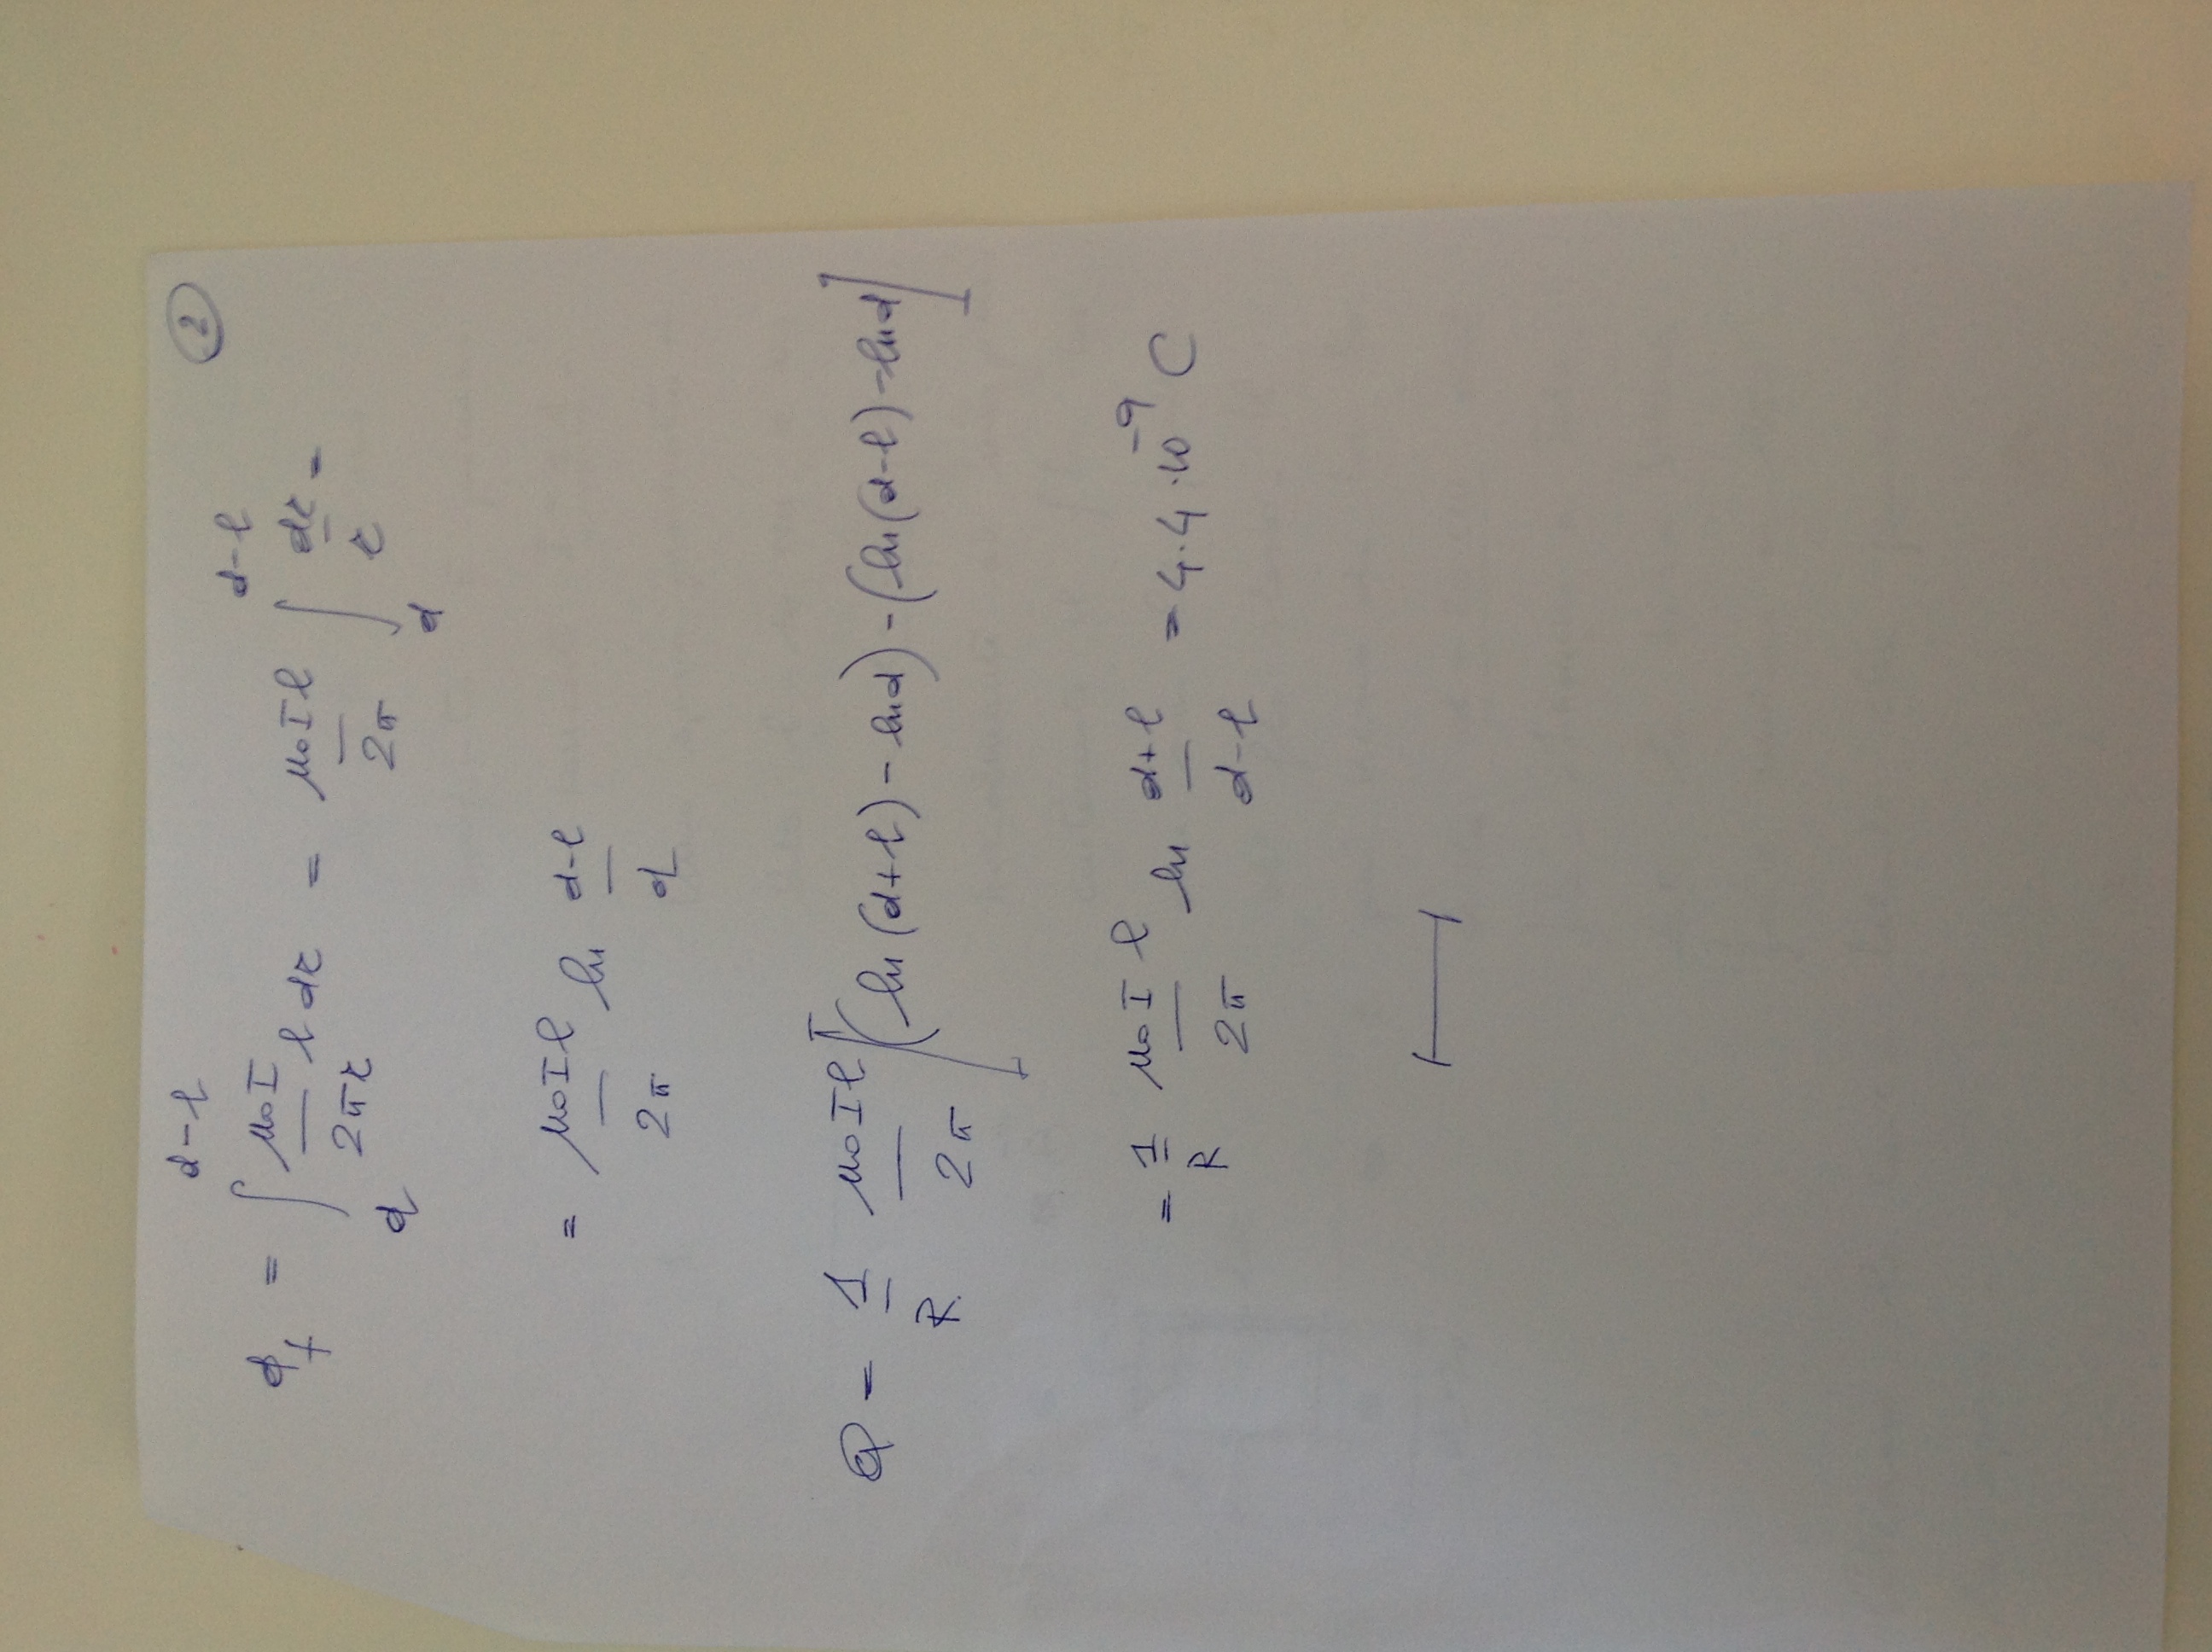 2
ϕ_f = ∫_d^{d-l} μ₀I/2πr l dr = μ₀Il/2π ∫_d^{d-l} dr/r =
= μ₀Il/2π ln d-l/d
Q = 1/R μ₀Il/2π [(ln(d+l) - ln d) - (ln(d-l) - ln d]
= 1/R μ₀Il/2π ln d+l/d-l = 4.4·10⁻⁹ C